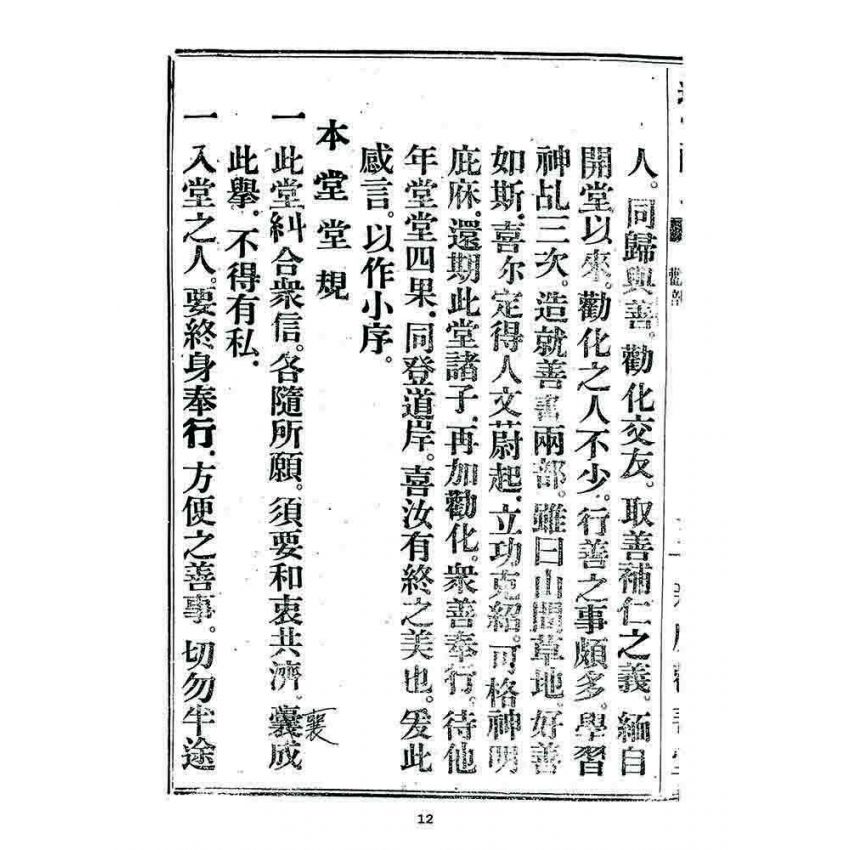 人。同歸與善。勸化交友。取善補仁之義。緬自
開堂以來。勸化之人不少。行善之事頗多。學習
神乩三次。造就善書兩部。雖曰山間草地。好善
如斯。喜尔定得人文蔚起。立功克紹。可格神明
庇庥。還期此堂諸子。再加勸化。衆善奉行。待他
年堂堂四果。同登道岸。喜汝有終之美也。爰此
感言。以作小序。
本堂堂規
一此堂糾合衆信。各隨所願。須要和衷共濟。囊成
襄
此擧。不得有私。
一入堂之人。要終身奉行。方便之善事。切勿半途
12